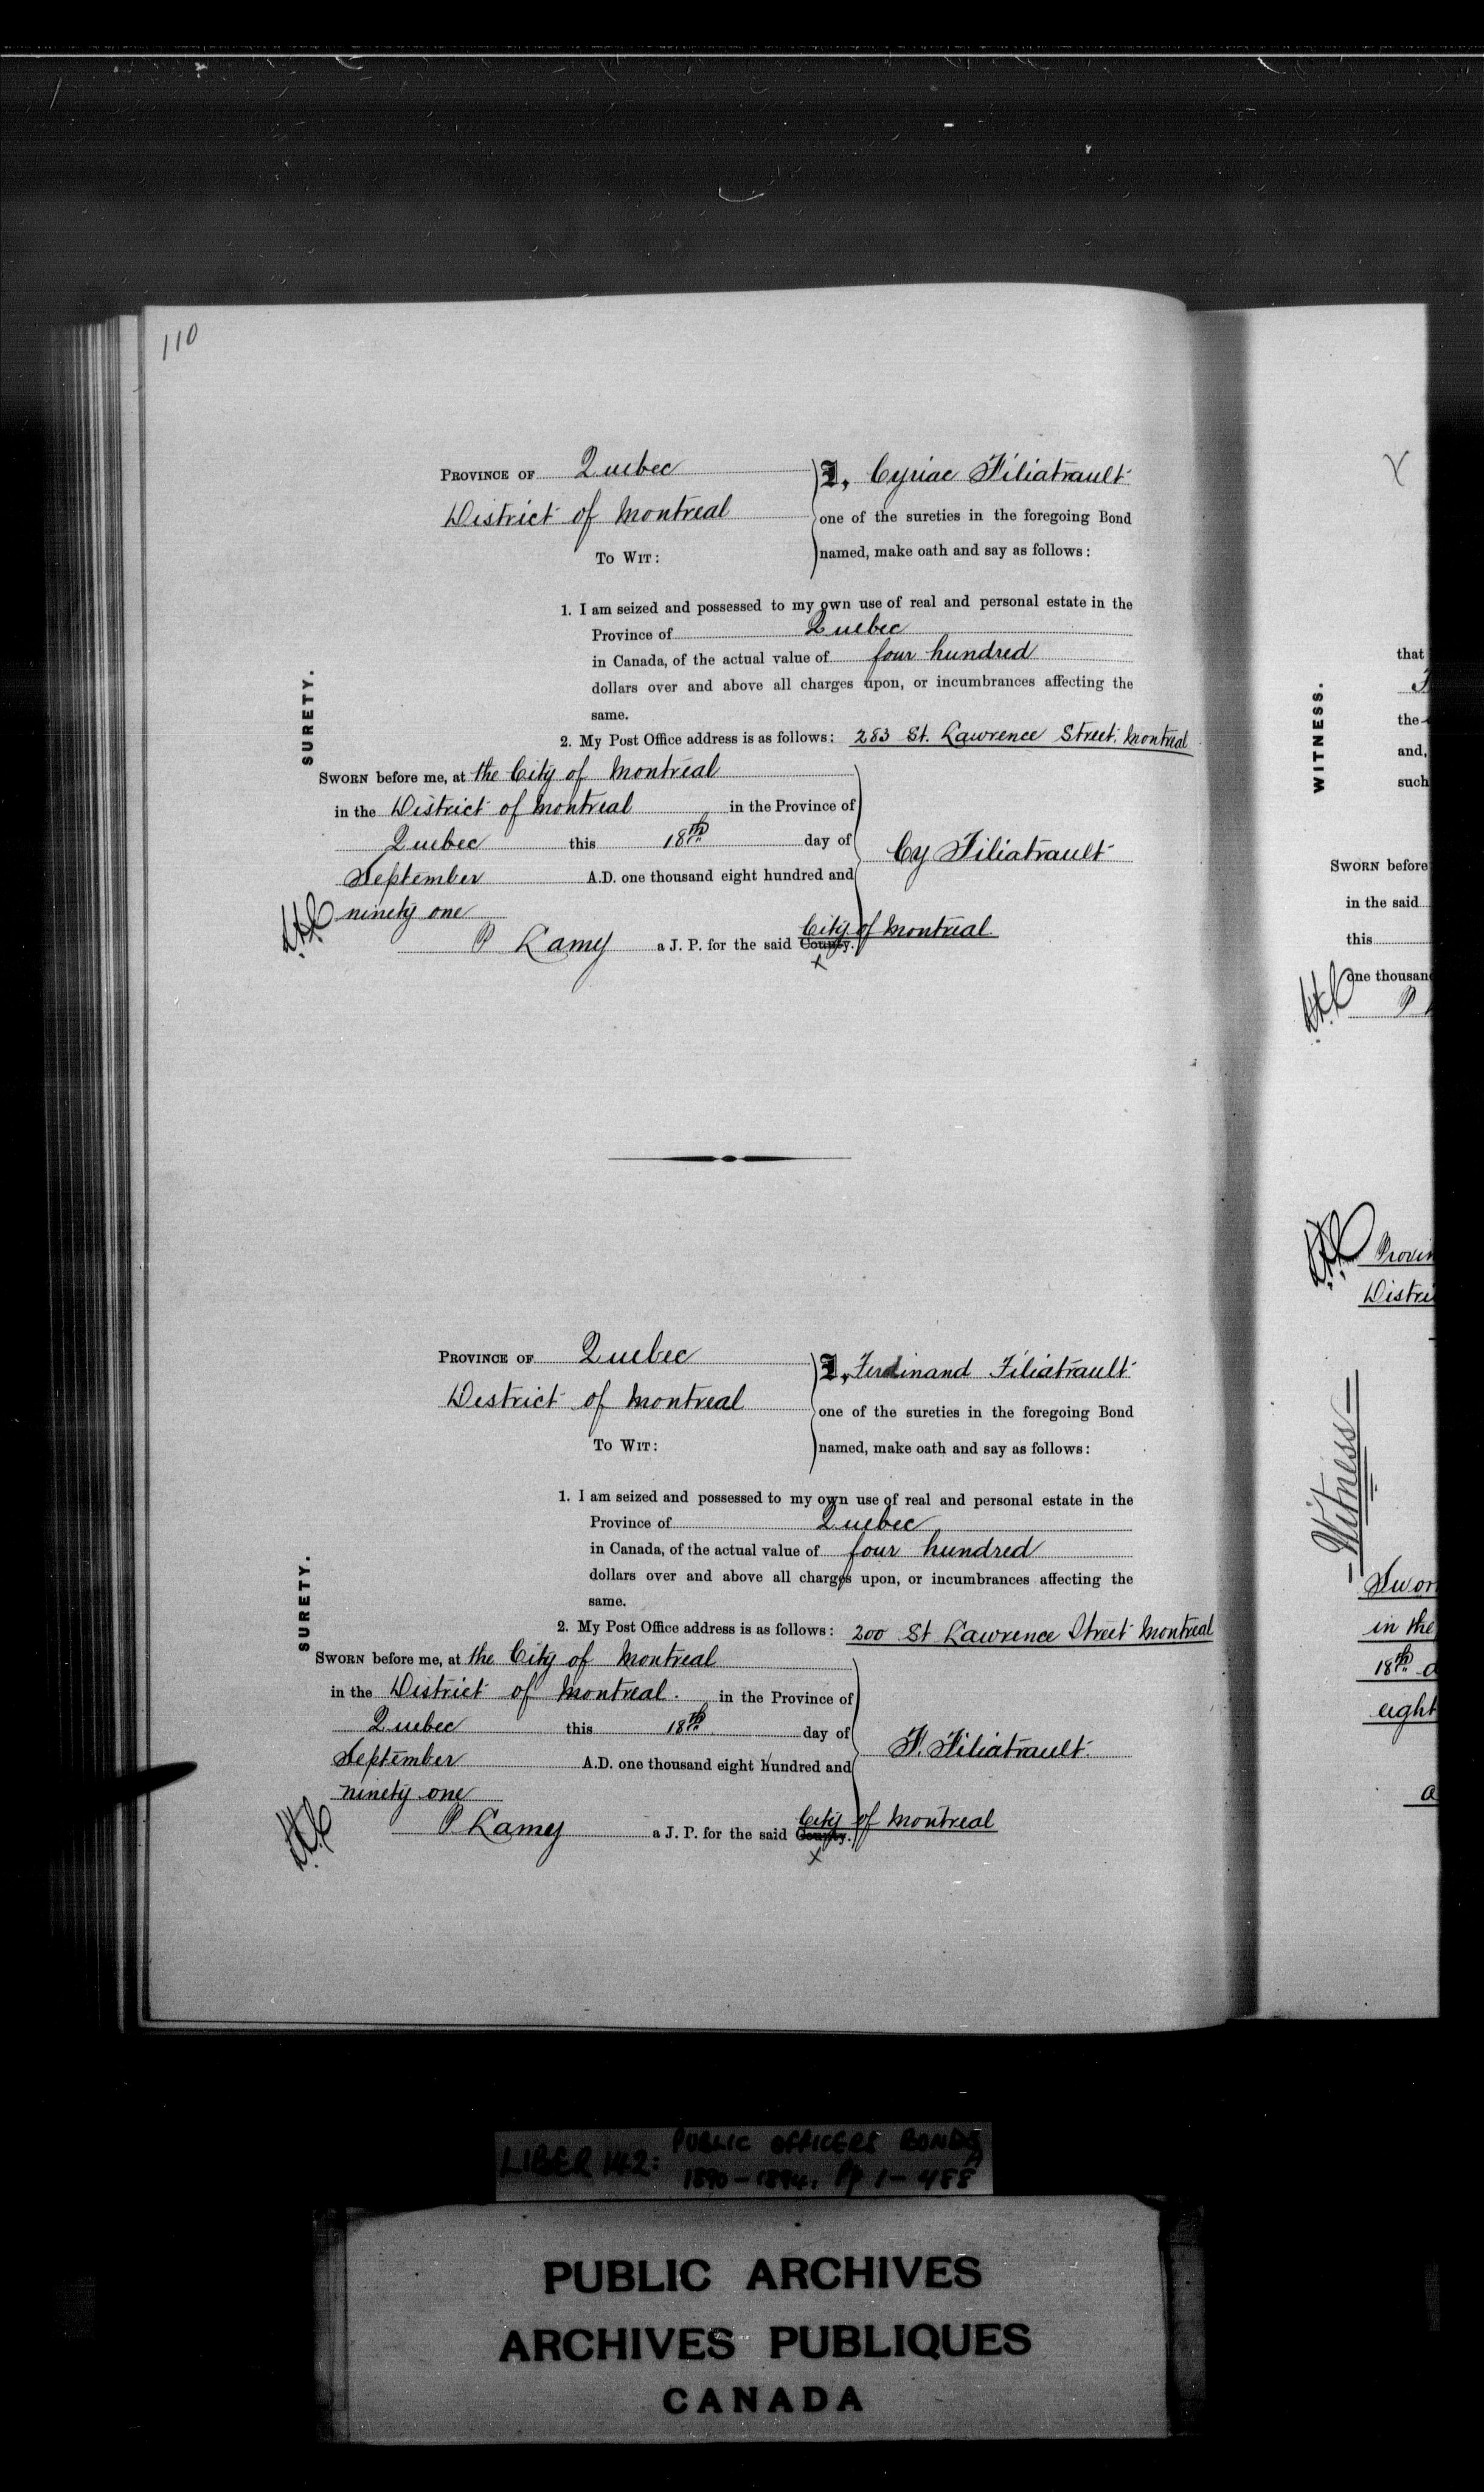 110
PROVINCE OF Quebec
District of Montreal
TO WIT:
I, Cyriac Filiatrault
one of the sureties in the foregoing Bond
named, make oath and say as follows:
SURETY.
1. I am seized and possessed to my own use of real and personal estate in the
Province of Quebec
in Canada, of the actual value of four hundred
dollars over and above all charges upon, or incumbrances affecting the
same.
2. My Post Office address is as follows: 283 St. Lawrence Street. Montreal
SWORN before me, at the City of Montreal
in the District of Montreal in the Province of
Quebec this 18th day of
September A.D. one thousand eight hundred and
ninety one
Cy Filiatrault
P Lamy a J. P. for the said County. City of Montreal
PROVINCE OF Quebec
District of Montreal
TO WIT:
I, Ferdinand Filiatrault
one of the sureties in the foregoing Bond
named, make oath and say as follows:
SURETY.
1. I am seized and possessed to my own use of real and personal estate in the
Province of Quebec
in Canada, of the actual value of four hundred
dollars over and above all charges upon, or incumbrances affecting the
same.
2. My Post Office address is as follows: 200 St Lawrence Street Montreal
SWORN before me, at the City of Montreal
in the District of Montreal. in the Province of
Quebec this 18th day of
September A.D. one thousand eight hundred and
ninety one
F. Filiatrault.
P. Lamy a J. P. for the said County. City of Montreal
that
the
and,
such
WITNESS.
SWORN before
in the said
this
one thousand
P
Provin
Distri
Witness
Swor
in the
18th
eight
a
LIBER 142: PUBLIC OFFICERS BONDS
1890-1894. Pp 1-488A
PUBLIC ARCHIVES
ARCHIVES PUBLIQUES
CANADA